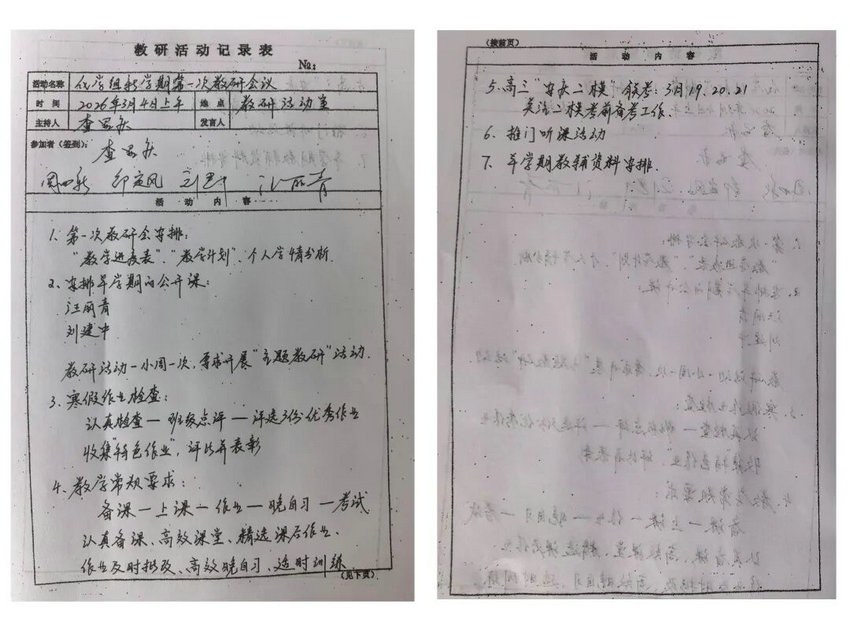 教研活动记录表
№:
活动名称 化学组新学期第一次教研会议
时间 2026年3月4日上午 地点 教研活动室
主持人 查思秋 发言人
参加者(签到):
查思秋
周 邹定凤 刘建中 汪丽青
活动内容
1. 第一次教研会安排:
"教学进度表"、"教学计划"、个人学情分析.
2. 安排本学期的公开课:
汪丽青
刘建中
教研活动一小周一次,要求开展"主题教研"活动.
3. 寒假作业检查:
认真检查 — 班级点评 — 评选3份优秀作业
收集"特色作业",评比并表彰
4. 教学常规要求:
备课 — 上课 — 作业 — 晚自习 — 考试
认真备课、高效课堂、精选课后作业、
作业及时批改、高效晚自习、适时训练
(见下页)
(接前页)
活动内容
5. 高三"安庆二模"联考: 3月19、20、21
关注二模考前备考工作.
6. 推门听课活动
7. 本学期教辅资料安排.